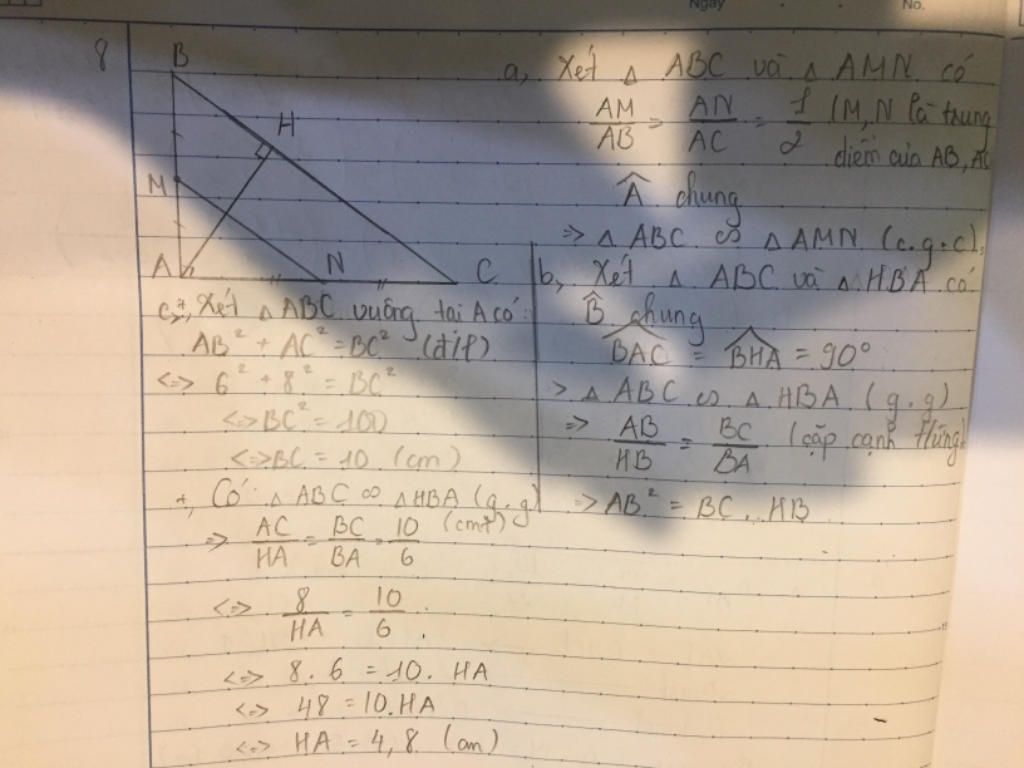 Ngày
No.
8
B
H
M
A
N
C
a, Xét △ ABC và △ AMN có
AM/AB = AN/AC = 1/2 (M, N là trung
điểm của AB, AC
Â chung
=> △ ABC ∽ △ AMN (c.g.c).
b, Xét △ ABC và △ HBA có
B̂ chung
BAC = BHA = 90°
=> △ ABC ∽ △ HBA (g.g)
=> AB/HB = BC/BA (cặp cạnh tứng)
=> AB² = BC . HB
c, +, Xét △ ABC vuông tại A có:
AB² + AC² = BC² (đ/lP)
<=> 6² + 8² = BC²
<=> BC² = 100
<=> BC = 10 (cm)
+, Có: △ ABC ∽ △ HBA (g.g)
(cmt)
=> AC/HA = BC/BA = 10/6
<=> 8/HA = 10/6
<=> 8.6 = 10. HA
<=> 48 = 10.HA
<=> HA = 4,8 (cm)